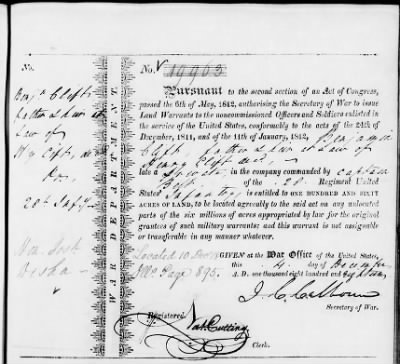 No.
Benjn Clift
father & heir at
Law of
Hy Clift, decd
28th Infy
WAR DEPARTMENT.
No. 19963
Pursuant to the second section of an Act of Congress,
passed the 6th of May, 1812, authorising the Secretary of War to issue
Land Warrants to the noncommissioned Officers and Soldiers enlisted in
the service of the United States, conformably to the acts of the 24th of
December, 1811, and of the 11th of January, 1812, Benjamin
Clift father & heir at Law of
Henry Clift decd,
late a Private in the company commanded by captain
of the 28 Regiment United
States Infantry is entitled to ONE HUNDRED AND SIXTY
ACRES OF LAND, to be located agreeably to the said act on any unlocated
parts of the six millions of acres appropriated by law for the original
grantees of such military warrants; and this warrant is not assignable
or transferable in any manner whatever.
Located 10
Page 895.
GIVEN at the War Office of the United States,
this day of
A. D. one thousand eight hundred and
J. C. Calhoun
Secretary of War.
Registered.
Nat Cutting
Clerk.